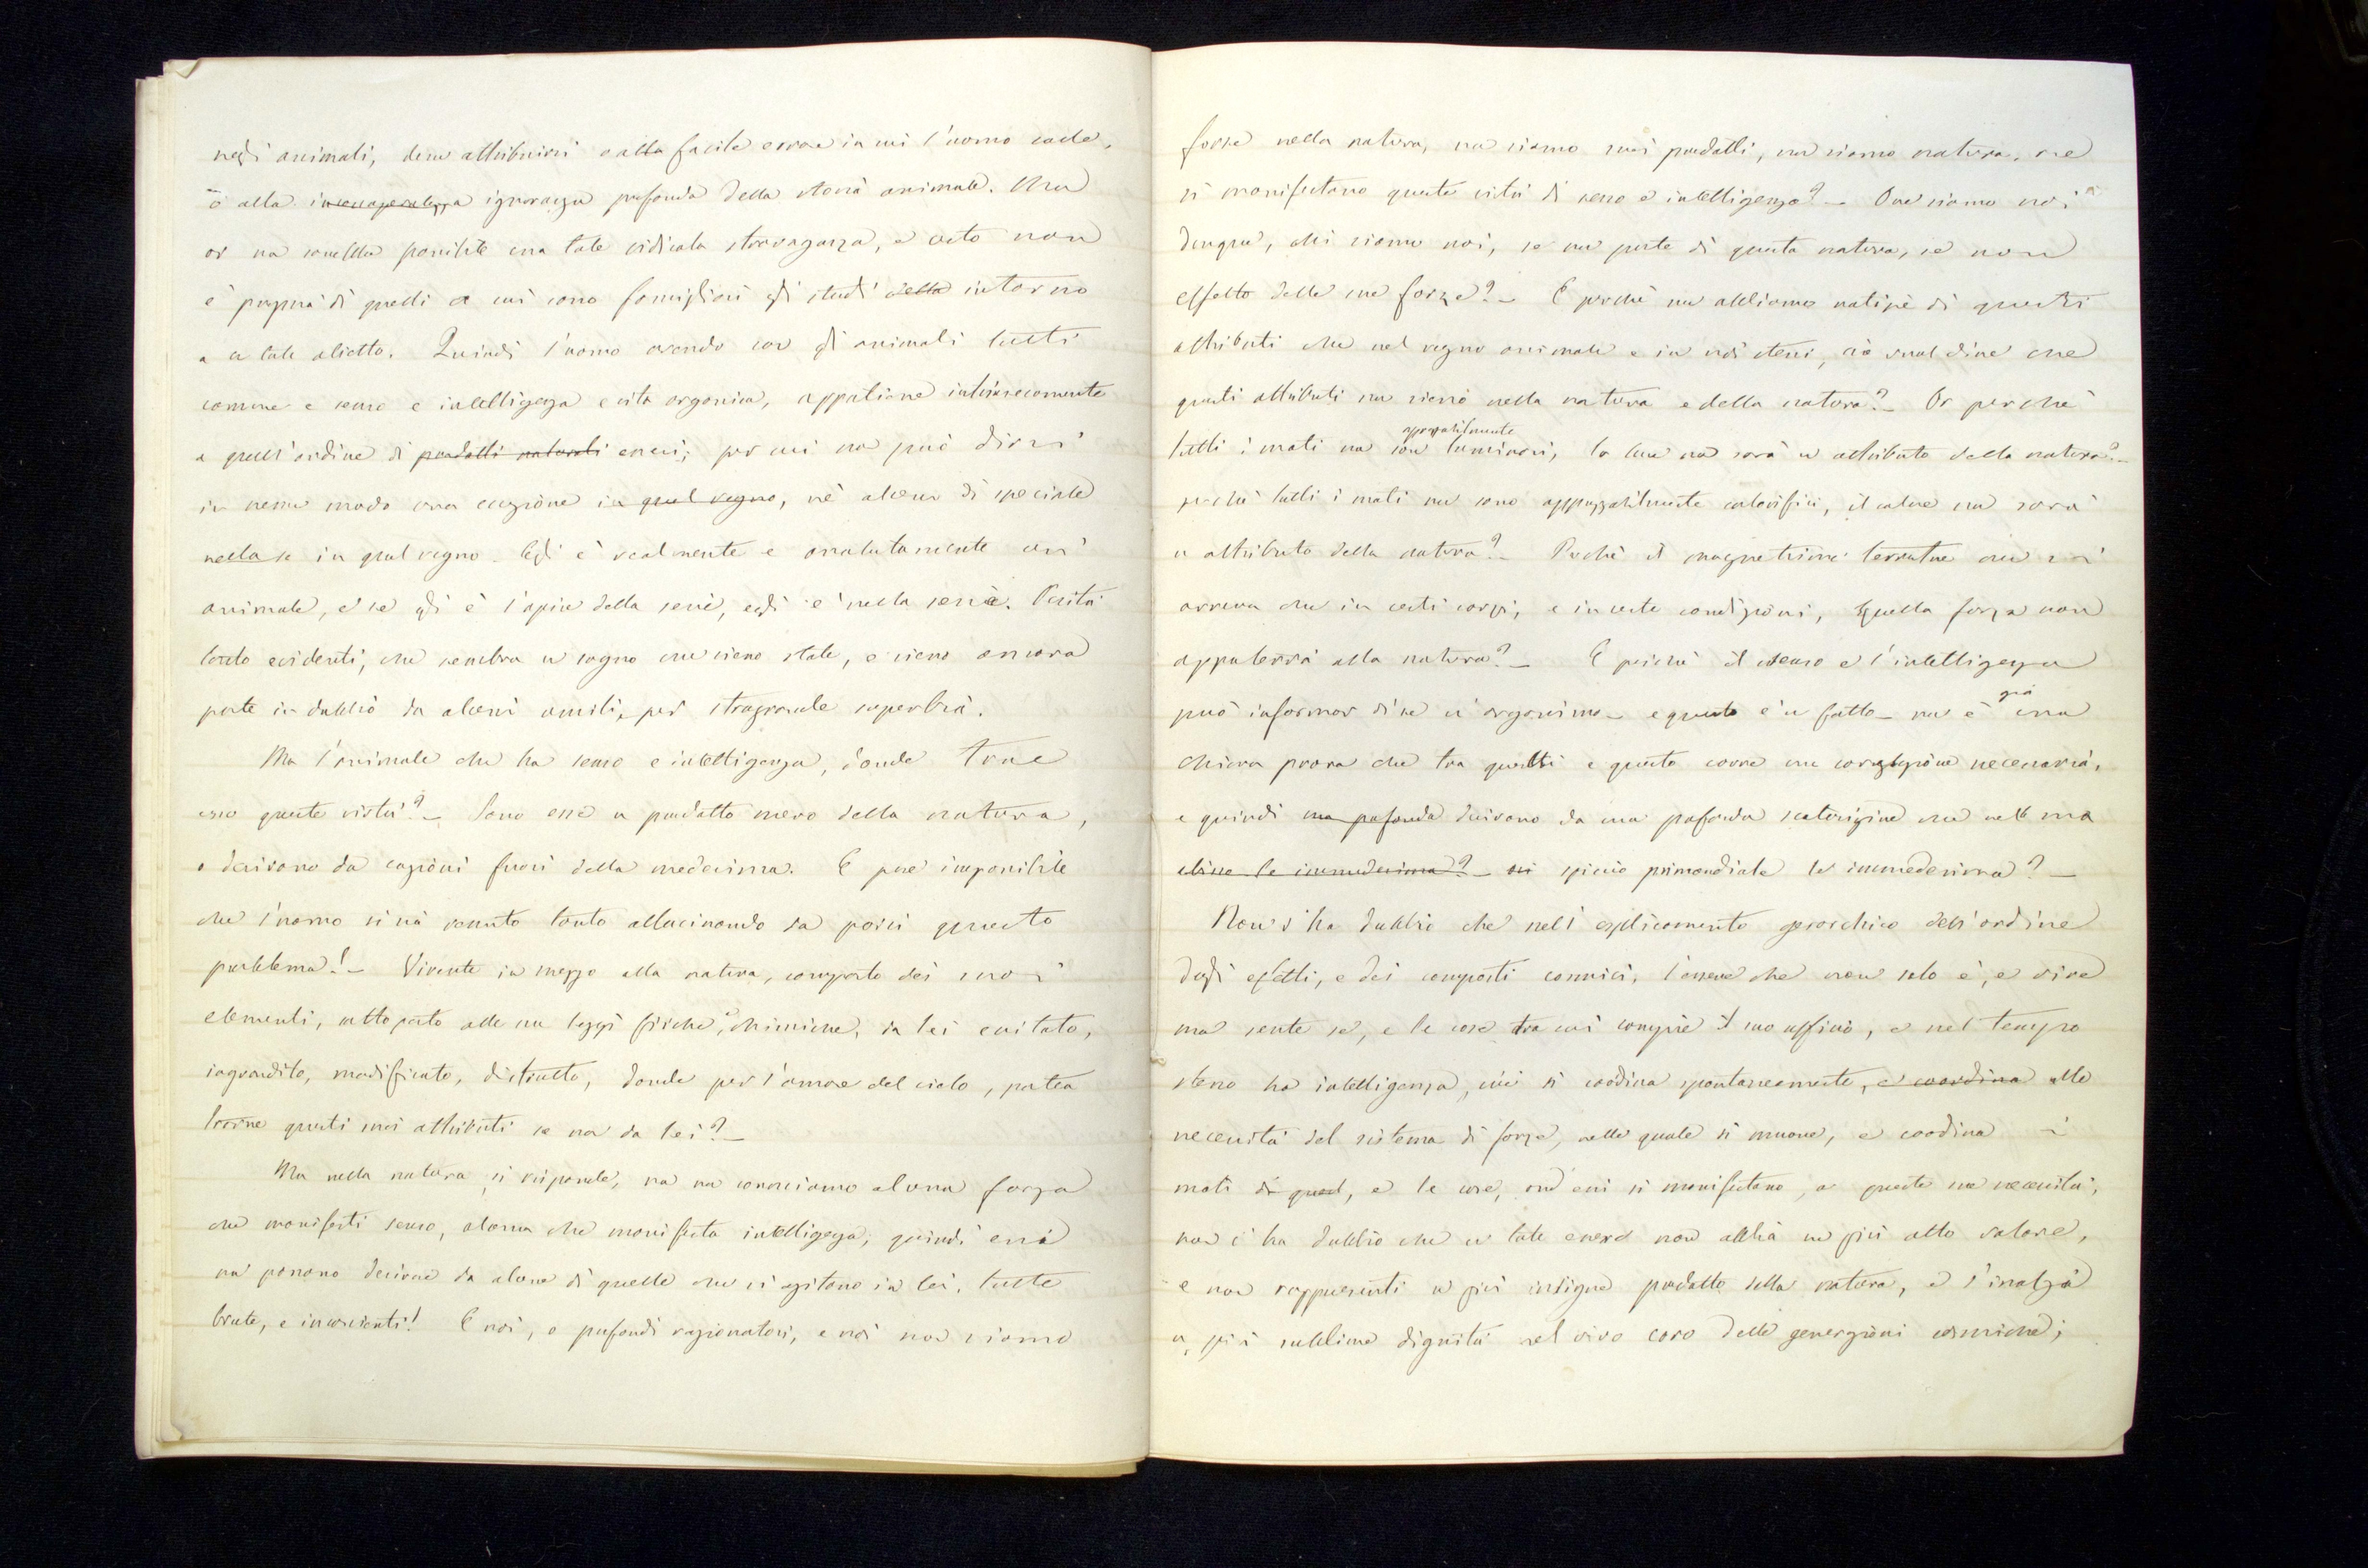 negli animali, deve attribuirsi o alla facile errore in cui l'uomo cade,
o alla ignoranza profonda della storia animale. Ma
or na sarebbe possibile una tale ridicola stravaganza, e certo non
è propria di quelli a cui sono famigliari gli studi della intorno
a un tale obietto. Quindi l'uomo avendo con gli animali tutti
comune e senso e intelligenza e vita organica, appartiene intrinsecamente
a quell'ordine di prodotti naturali esseri; per cui non può dirsi
in nessun modo una eccezione in quel regno, nè alcun di speciale
nella se in quel regno. Egli è realmente e assolutamente un
animale, e se gli è l'apice della serie, egli è nella serie. Verità
tanto evidenti, che sembra un sogno che sieno state, e sieno ancora
poste in dubbio da alcuni umili, per stragrande superbia.
Ma l'animale che ha senso e intelligenza, donde trae
esso queste virtù? - Sono esse un prodotto mero della natura,
o derivano da cagioni fuori della medesima. E pure impossibile
che l'uomo si nà venuto tanto allucinando da porsi questo
problema! - Vivente in mezzo alla natura, composto dei suoi
elementi, sottoposto alle sue leggi fisiche, e chimiche, da lei eccitato,
ingrandito, modificato, distrutto, donde per l'amore del cielo, potea
trarre questi suoi attributi se non da lei? -
Ma nella natura, si risponde, noi non conosciamo alcuna forza
che manifesti senso, alcuna che manifesta intelligenza; quindi essi
non possono derivare da alcune di quelle che si agitano in lei, tutte
brute, e inconscienti! E noi, o profondi ragionatori, e noi non siamo
forze nella natura, non siamo suoi prodotti, non siamo natura, che
si manifestano queste virtù di senso e intelligenza? - Ove siamo noi
dunque, chi siamo noi, se non parte di questa natura, se non
effetto delle sue forze? - E perchè non abbiamo notizie di questi
attributi che nel regno animale e in noi stessi, ciò vuol dire che
questi attributi non sieno nella natura e della natura? - Or perchè
tutti i mati non son apprezzabilmente luminosi, la luce non sarà un attributo della natura? -
perchè tutti i mati non sono apprezzabilmente calorifici, il calore non sarà
un attributo della natura? - Perchè il magnetismo terrestre non si
osserva che in certi corpi, e in certe condizioni, quella forza non
apparterrà alla natura? - E perchè il senso e l'intelligenza
può informar di se un organismo - e questo è un fatto - non è già una
chiara prova che tra questi e questo corre una correlazione necessaria,
e quindi una profonda derivano da una profonda scaturigine che nell ma
le immedesima? - spicio primordiale le immedesima? -
Non v'ha dubbio che nell'esplicamento gerarchico dell'ordine
degli effetti, e dei composti cosmici, l'essere che non solo è, e vive
ma sente se, e le cose tra cui compie il suo ufficio, e nel tempo
stesso ha intelligenza, cioè si coordina spontaneamente, e coordina alle
necessità del sistema di forze, nelle quale si muove, e coordina i
mati di quel, e le cose, ond'essi si manifestano, a queste sue necessità,
non v'ha dubbio che un tale essere non abbia un più alto valore,
e non rappresenti un più insigne prodotto della natura, e s'inalzi
a più sublime dignità nel vivo coro delle generazioni cosmiche;